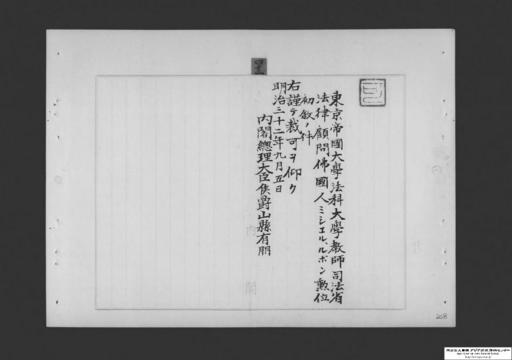 東京帝國大學法科大學教師司法省
法律顧問佛國人ミシエル、ルボン勲位
初敍ノ件
右謹テ裁可ヲ仰ク
明治三十二年九月五日
內閣總理大臣侯爵山縣有朋
268